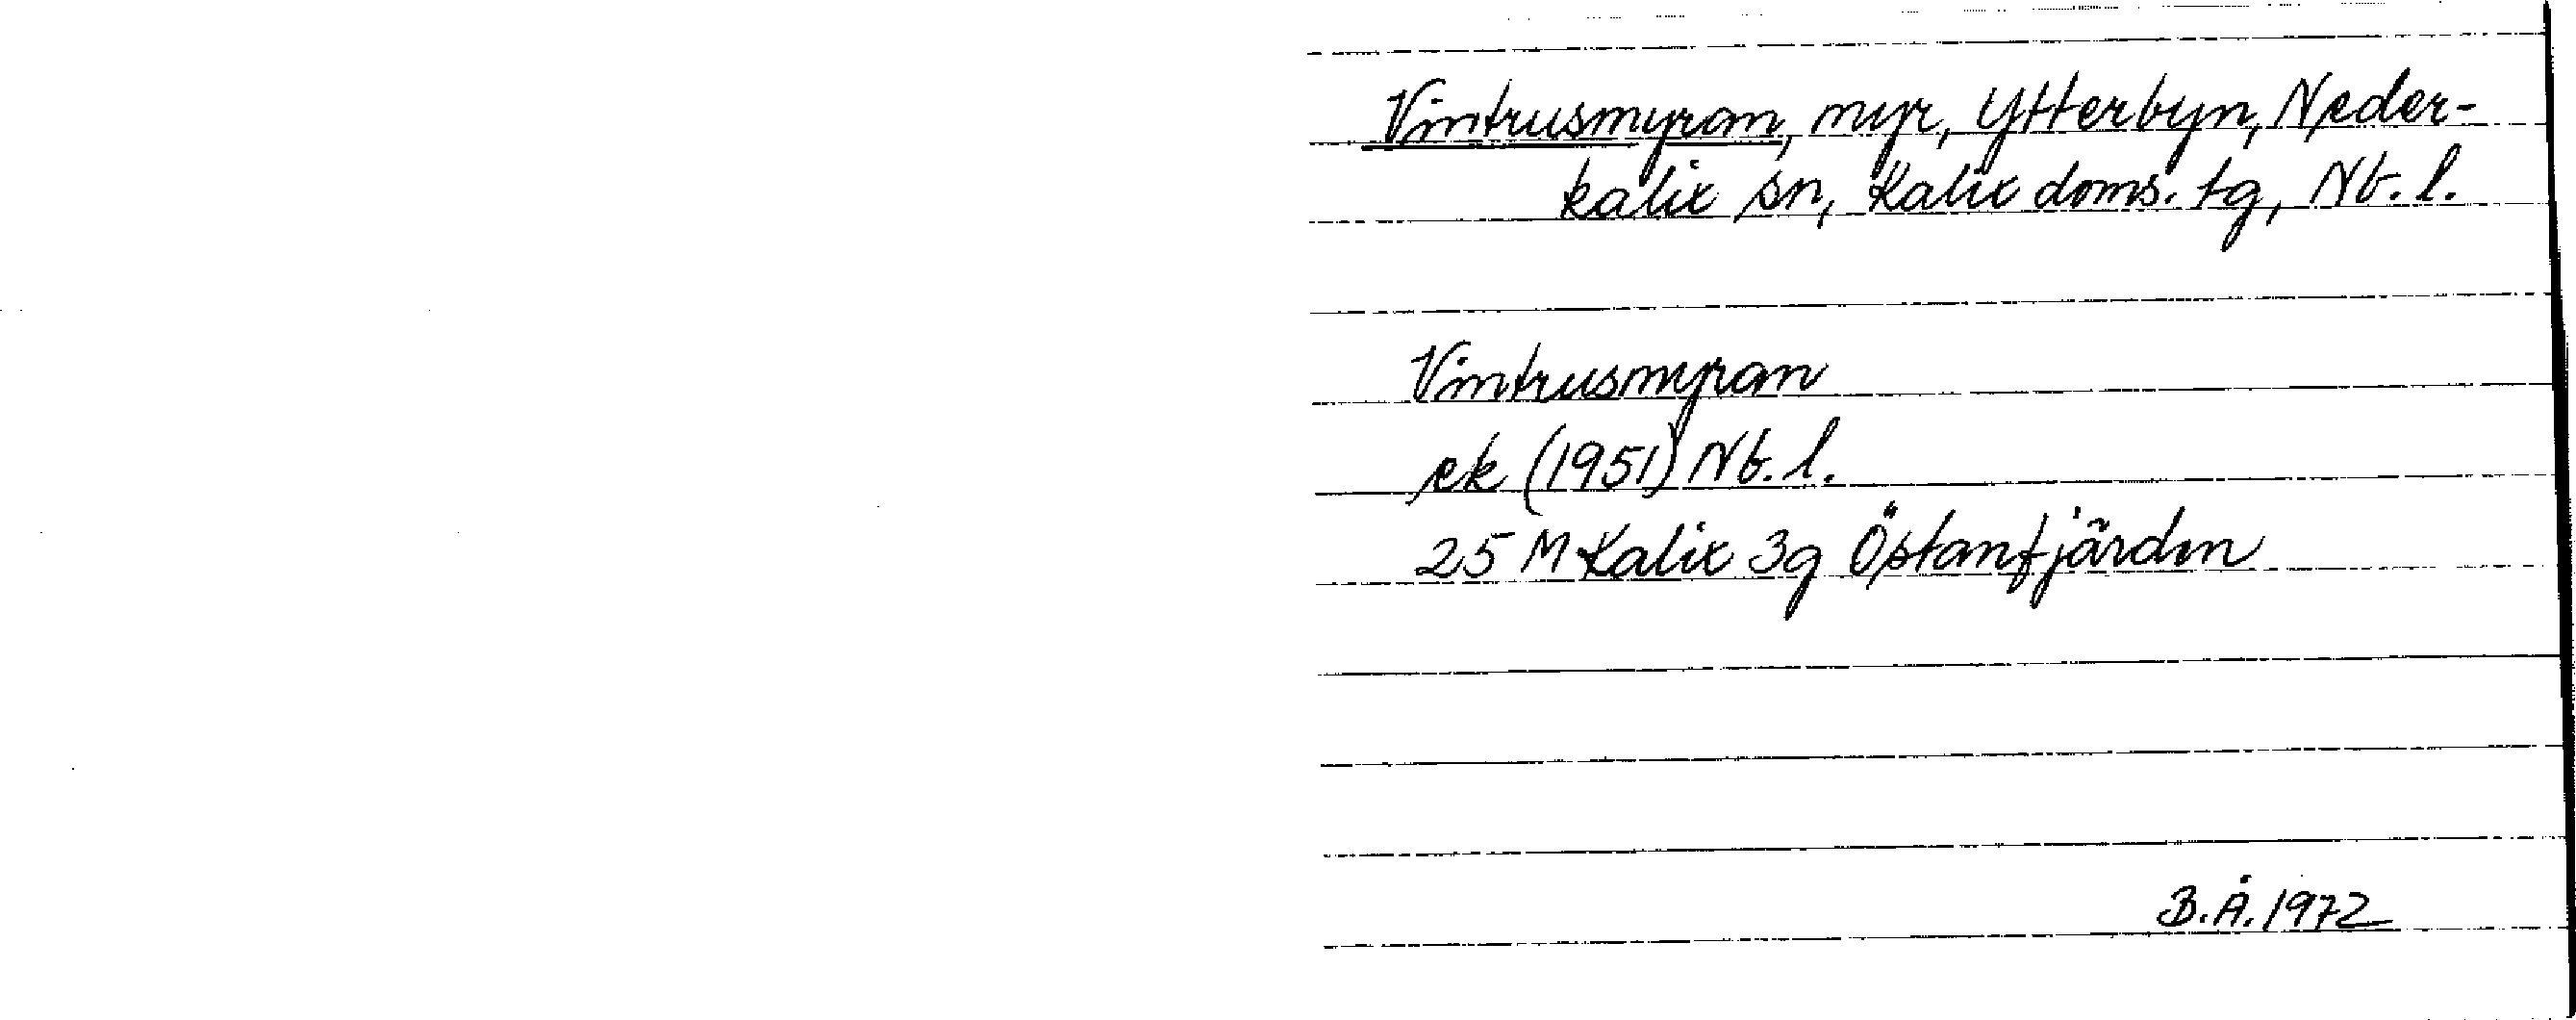 Vintrusmyran, myr, Ytterbyn, Neder-
kalix sn, Kalix doms. tg, Nb. l.
Vintrusmyran
ek (1951) Nb. l.
25 M Kalix 3g Östanfjärden
B.Å. 1972